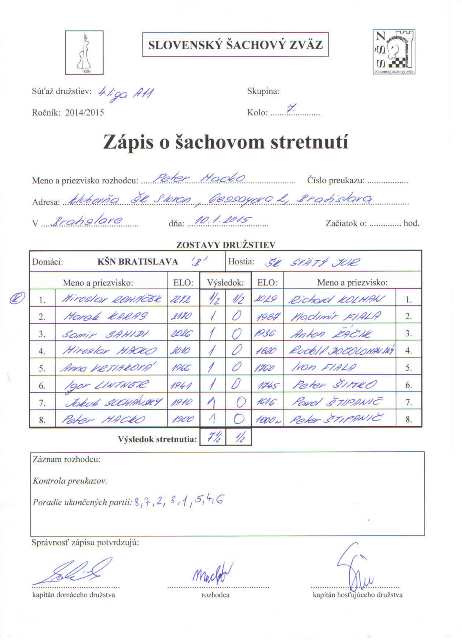 SLOVENSKÝ ŠACHOVÝ ZVÄZ
Súťaž družstiev: 4 liga A11 Skupina:
Ročník: 2014/2015 Kolo: 7
Zápis o šachovom stretnutí
Meno a priezvisko rozhodcu: Peter Macko Číslo preukazu:
Adresa: ŠK Slovan, 2, Bratislava
V Bratislave dňa: 10.1.2015 Začiatok o: hod.
ZOSTAVY DRUŽSTIEV
Domáci: KŠN BRATISLAVA 'B' Hostia: ŠK SVÄTÝ JUR
Meno a priezvisko: ELO: Výsledok: ELO: Meno a priezvisko:
1. Miroslav 1/2 1/2 Richard KOLMAN 1.
2. Marek KARAS 1 0 Vladimír FIALA 2.
3. Samir SAHIDI 1 0 1936 Anton ŽAČIK 3.
4. Miroslav MACKO 1 0 1800 Rudolf 4.
5. Anna 1 0 Ivan FIALA 5.
6. Igor LINTNER 1941 1 0 1765 Peter ŠIMKO 6.
7. Jakub SUCHÁNSKY 1910 1 0 Pavol ŠTIPANIČ 7.
8. Peter MACKO 1900 1 0 1000 Peter ŠTIPANIČ 8.
Výsledok stretnutia: 7½ ½
Záznam rozhodcu:
Kontrola preukazov.
Poradie ukončených partií: 8, 7, 2, 3, 1, 5, 4, 6
Správnosť zápisu potvrdzujú:
kapitán domáceho družstva rozhodca kapitán hosťujúceho družstva